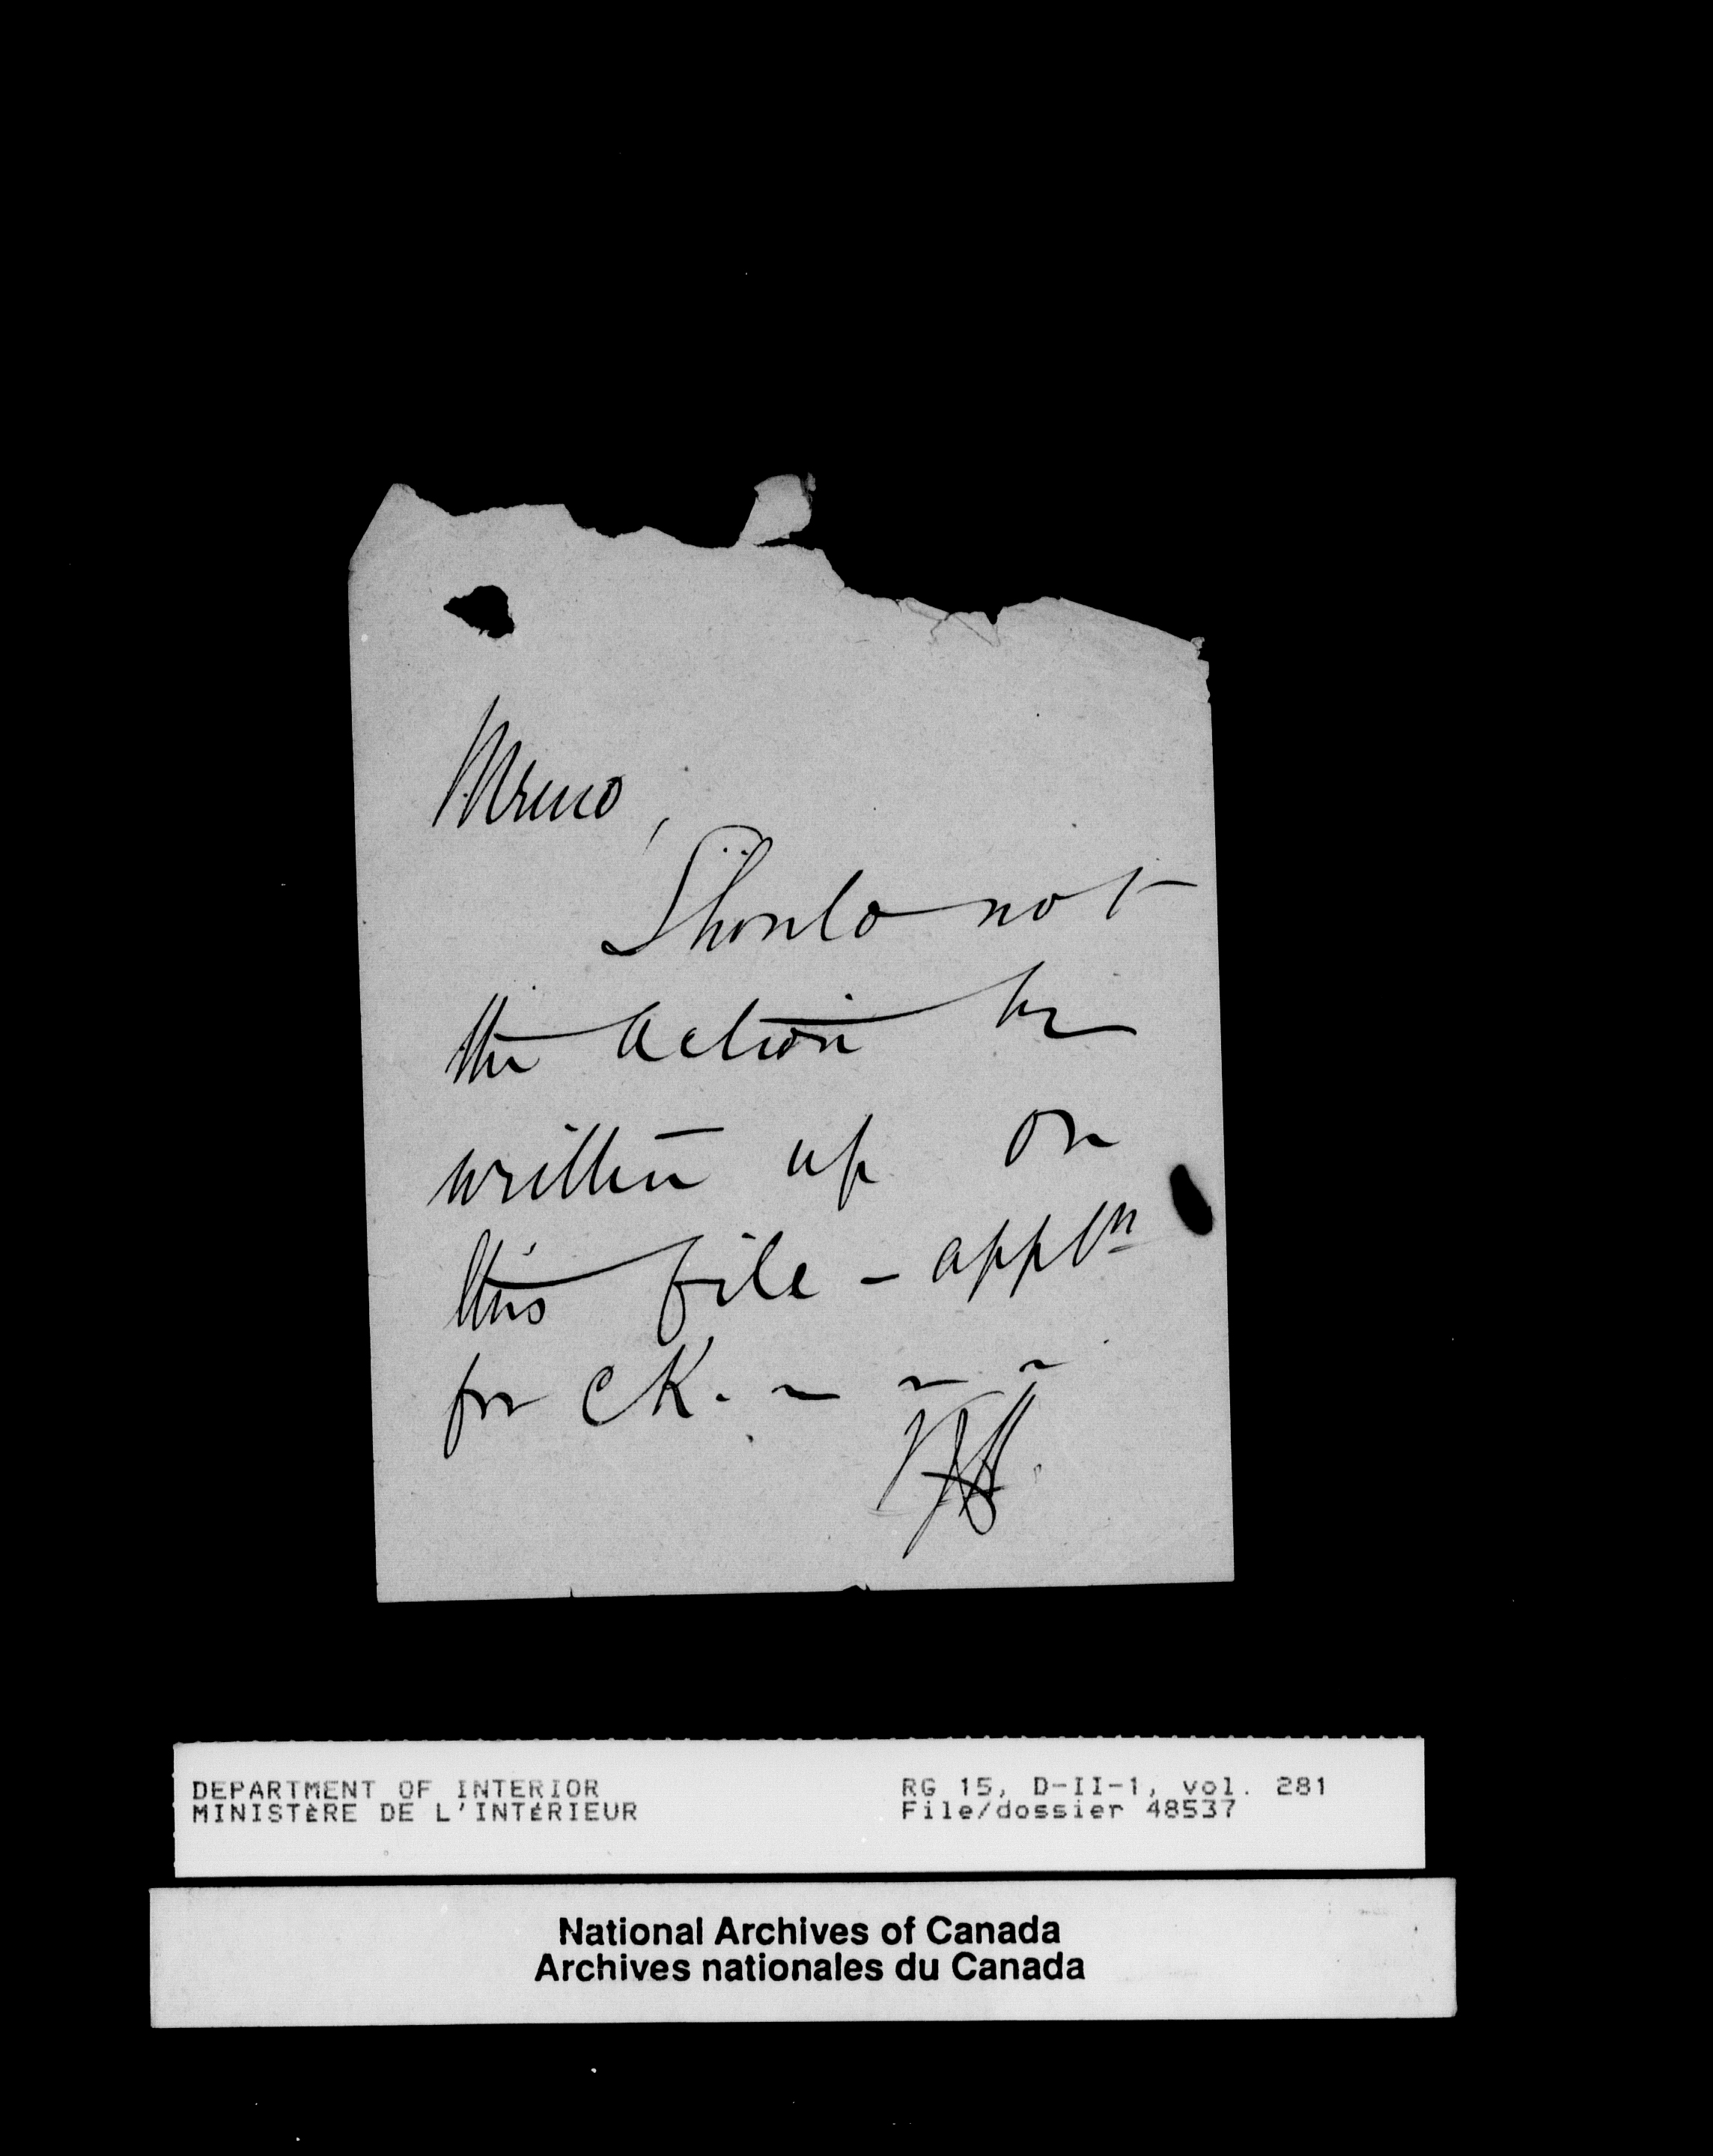 Memo,
Should not
the action be
written up on
this file - appln
for CK. - - -
DEPARTMENT OF INTERIOR
MINISTÈRE DE L'INTÉRIEUR
RG 15, D-II-1, vol. 281
File/dossier 48537
National Archives of Canada
Archives nationales du Canada